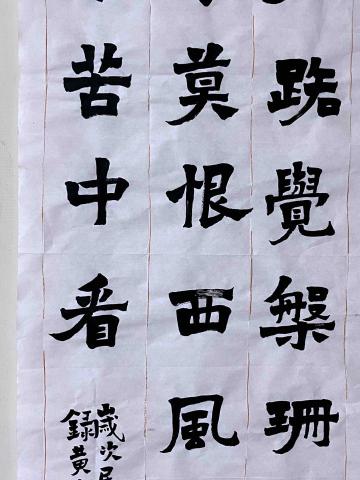 覺槃珊
莫恨西風
苦中看
歲次
錄黄